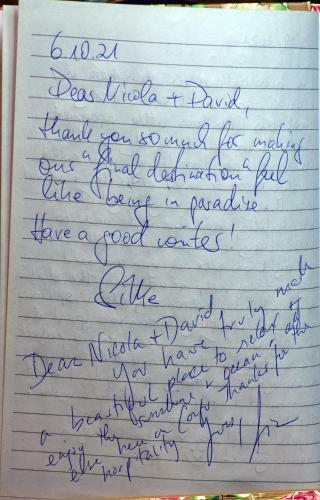 6.10.21
Dear Nicola + David,
thank you so much for making
our "final destination" feel
like being in paradise.
Have a good winter!
Silke
Dear Nicola + David
You have truly made
a beautiful place to relax &
enjoy the sunshine & ocean
here on Corfu. Thanks for the
hospitality